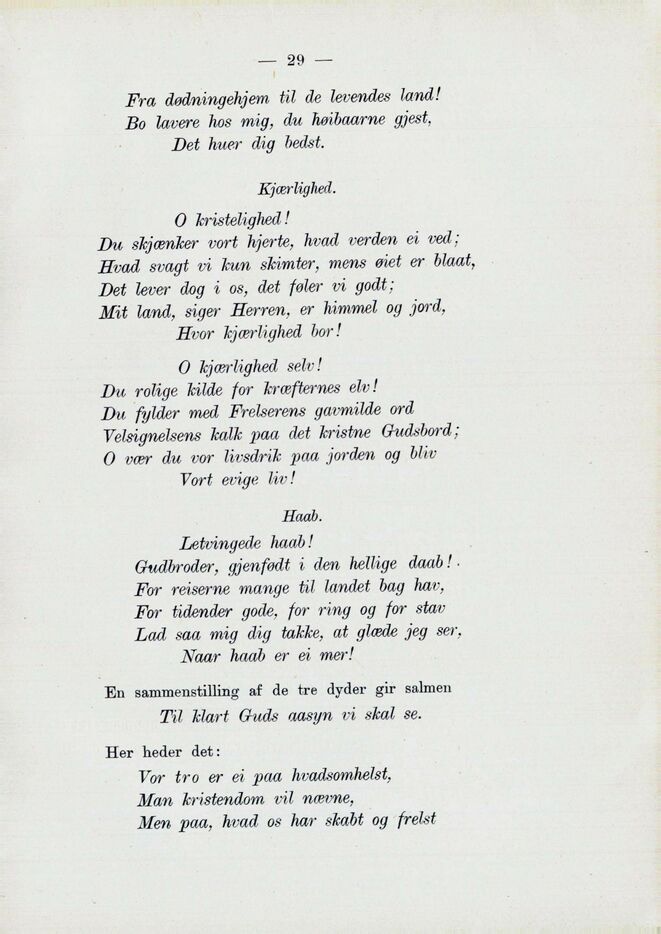 — 29 —
Fra dødningehjem til de levendes land!
Bo lavere hos mig, du høibaarne gjest,
Det huer dig bedst.
Kjærlighed.
O kristelighed!
Du skjænker vort hjerte, hvad verden ei ved;
Hvad svagt vi kun skimter, mens øiet er blaat,
Det lever dog i os, det føler vi godt;
Mit land, siger Herren, er himmel og jord,
Hvor kjærlighed bor!
O kjærlighed selv!
Du rolige kilde for kræfternes elv!
Du fylder med Frelserens gavmilde ord
Velsignelsens kalk paa det kristne Gudsbord;
O vær du vor livsdrik paa jorden og bliv
Vort evige liv!
Haab.
Letvingede haab!
Gudbroder, gjenfødt i den hellige daab!
For reiserne mange til landet bag hav,
For tidender gode, for ring og for stav
Lad saa mig dig takke, at glæde jeg ser,
Naar haab er ei mer!
En sammenstilling af de tre dyder gir salmen
Til klart Guds aasyn vi skal se.
Her heder det:
Vor tro er ei paa hvadsomhelst,
Man kristendom vil nævne,
Men paa, hvad os har skabt og frelst